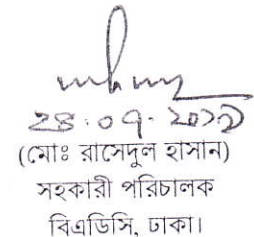 ২৪.০৭.২০১৯
(মোঃ রাসেদুল হাসান)
সহকারী পরিচালক
বিএডিসি, ঢাকা।